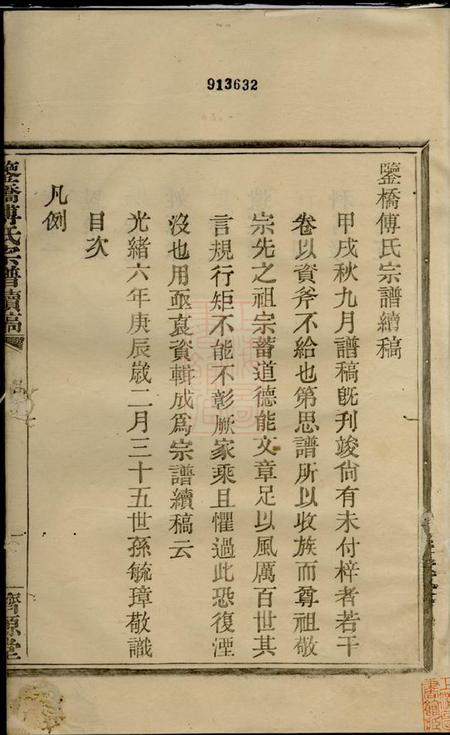 913632
鑒橋傅氏宗譜續稿
甲戌秋九月譜稿旣刊竣尙有未付梓者若干
卷以資斧不給也第思譜所以收族而尊祖敬
宗先之祖宗蓄道德能文章足以風厲百世其
言規行矩不能不彰厥家乘且懼過此恐復湮
沒也用亟裒資輯成爲宗譜續稿云
光緒六年庚辰歲二月三十五世孫毓璋敬識
目次
凡例
鑒橋傅氏宗譜續稿
一
濟源堂